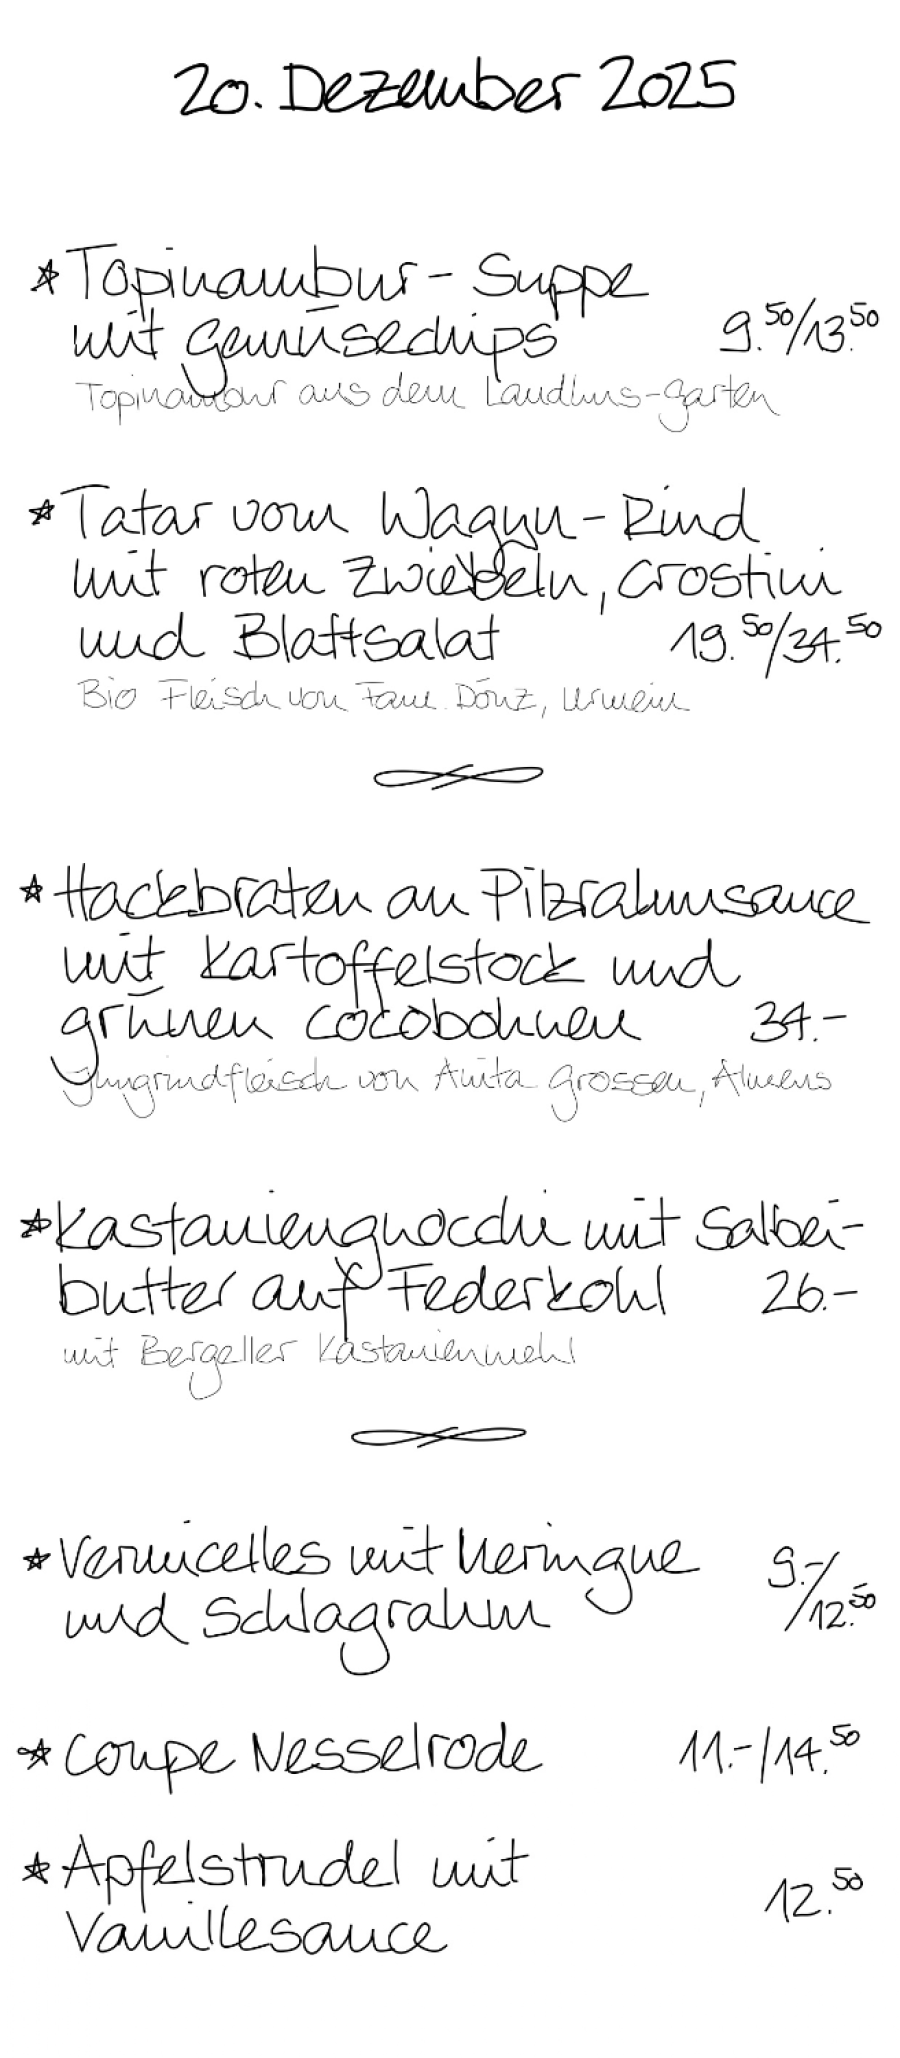 20. Dezember 2025
* Topinambur - Suppe
mit Gemüsechips 9.50/13.50
Topinambur aus dem Landhus-Garten
* Tatar vom Wagyu - Rind
mit roten Zwiebeln, Crostini
und Blattsalat 19.50/34.50
Bio Fleisch von Fam. Dönz, Urmein
* Hackbraten an Pilzrahmsauce
mit Kartoffelstock und
grünen Cocobohnen 34.-
Jungrindfleisch von Anita Grossen, Almens
* Kastaniengnocchi mit Salbei-
butter auf Federkohl 26.-
mit Bergeller Kastanienmehl
* Vermicelles mit Meringue 9.-/
und Schlagrahm 12.50
* Coupe Nesselrode 11.-/14.50
* Apfelstrudel mit
Vanillesauce 12.50